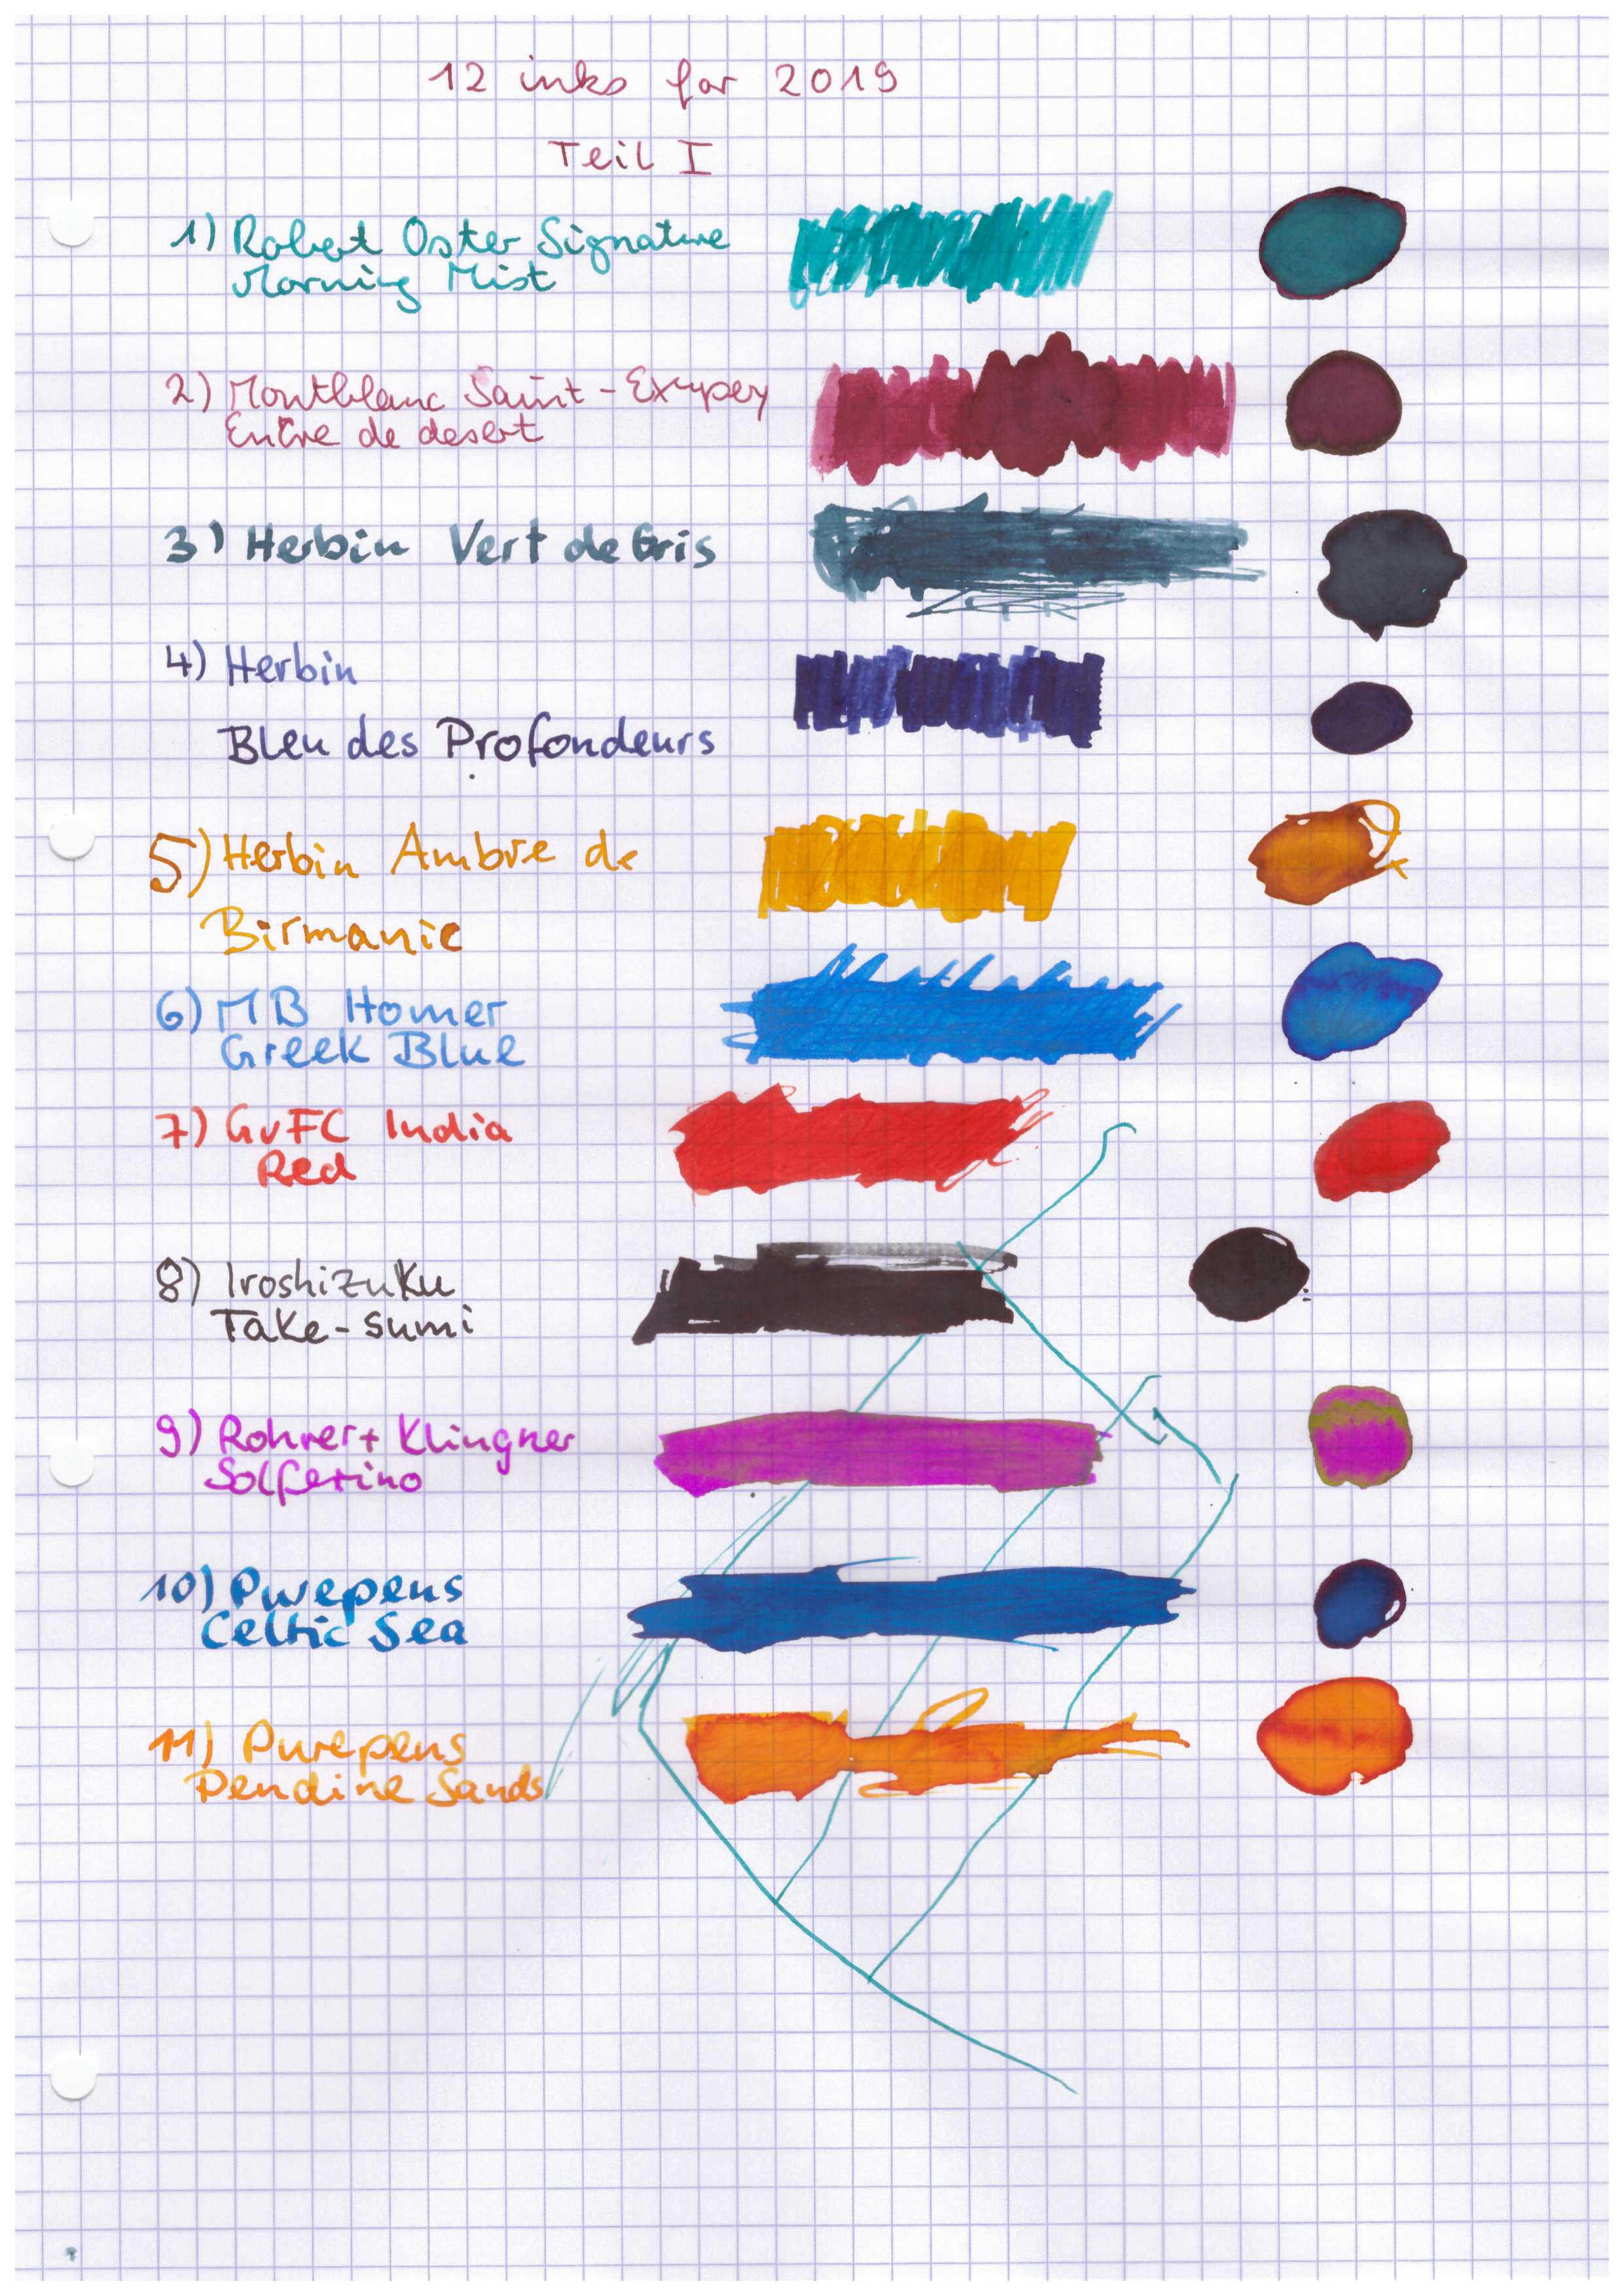 12 inks for 2019
Teil I
1) Robert Oster Signature
Morning Mist
2) Montblanc Saint-Exupery
Encre de desert
3) Herbin Vert de Gris
4) Herbin
Bleu des Profondeurs
5) Herbin Ambre de
Birmanie
6) MB Homer
Greek Blue
7) GvFC India
Red
8) Iroshizuku
Take-sumi
9) Rohrer + Klingner
Solferino
10) Purepens
Celtic Sea
11) Purepens
Pendine Sands